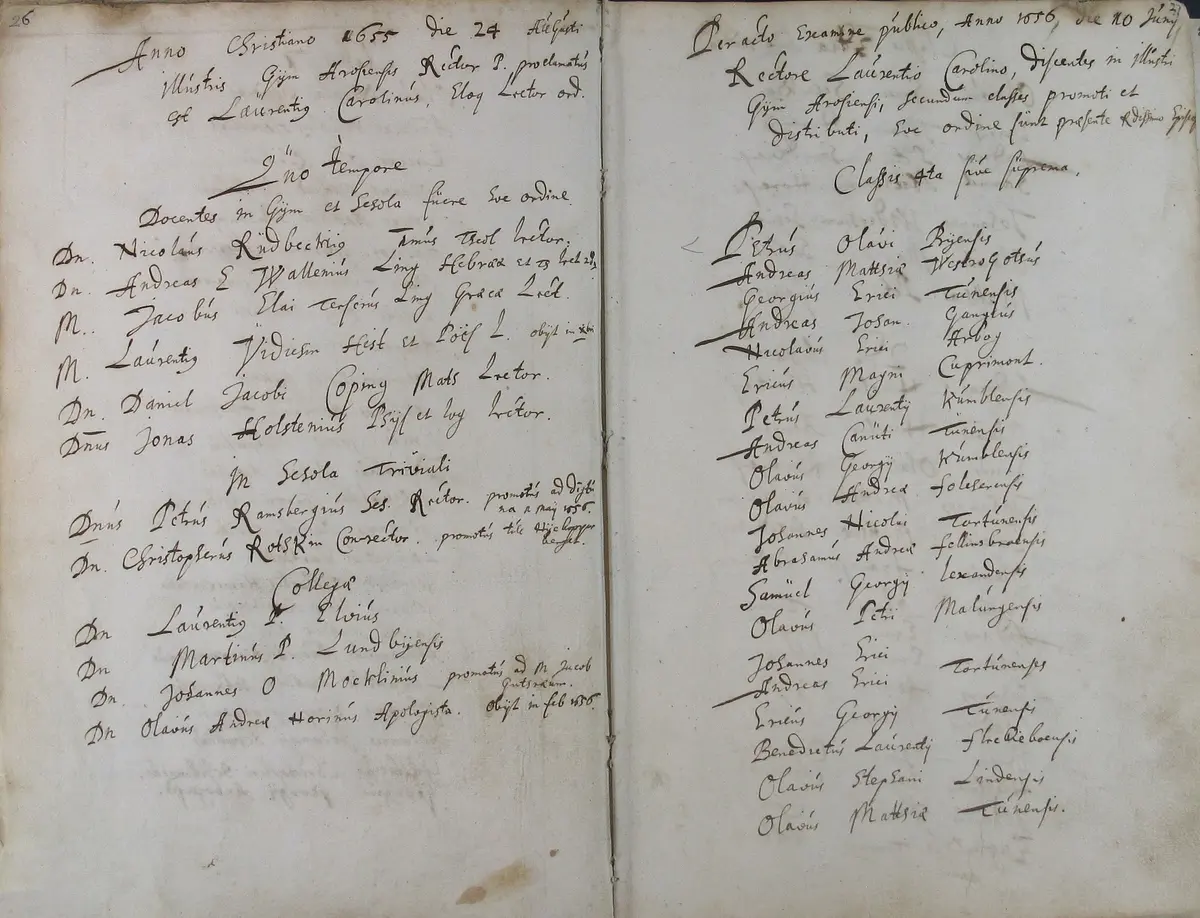 26
Anno Christiano 1655 die 24 Augusti
illustris Gÿm Arosiensis Rector P. proclamatus
est Laurentig Carolinús, Eloq Lector ord.
Qúo tempore
Docentes in Gÿm et Schola fúere hoc ordine
Dn. Nicolaús Rúdbeckig Imús Theol lector.
Dn. Andreas E Wallenius Ling Hebrææ et
M. Jacobús Elai Terserús Ling Græcæ Lect.
M. Laúrentig Vidichm Hist et Pöës L. obijt in
Dn. Daniel Jacobi Coping Maths Lector.
Dnús Jonas Holstenius Phÿs et log lector.
In Schola Triviali
Dnús Petrús Ramsbergiús Sch. Rector. promotús ad
maij 1656.
Dn. Christophorús Rothkin Conrector. promotús
Collegæ
Dn Laúrentig P. Elviús
Dn Martinús P. Lundbÿensis
Dn. Johannes O Mocklinius promotús ad M. Jacob
Dn Olaús Andreæ Horinús Apologista. Obijt in feb 1656.
Peracto Examine público, Anno 1656, die 10 Júnij
Rectore Laurentio Carolino, discentes in illustri
Gÿm Arosiensi, secundum classes promoti et
distribúti, hoc ordine súnt præsente Rdissimo
Classis 4ta sive súprema.
Petrús Olavi Bijensis
Andreas Matthiæ Westrogothús
Georgiús Erici Túnensis
Andreas Johan. Gangiús
Nicolaús Erici Arbog
Ericús Magni Cuprimont.
Petrús Laurentij Kúmblensis
Andreas Canúti Túnensis
Olavús Georgij Kúmblensis
Olavús Andreæ folcherensis
Johannes Nicolai Tortúnensis
Abrahamús Andreæ fellinsbroensis
Samúel Georgij lexandensis
Olavús Petri Malúngensis
Johannes Erici
Andreas Erici Tortúnensis
Ericús Georgij Túnensis
Benedictús Laurentij
Olavús Stephani Lindensis
Olavús Matthiæ Túnensis.